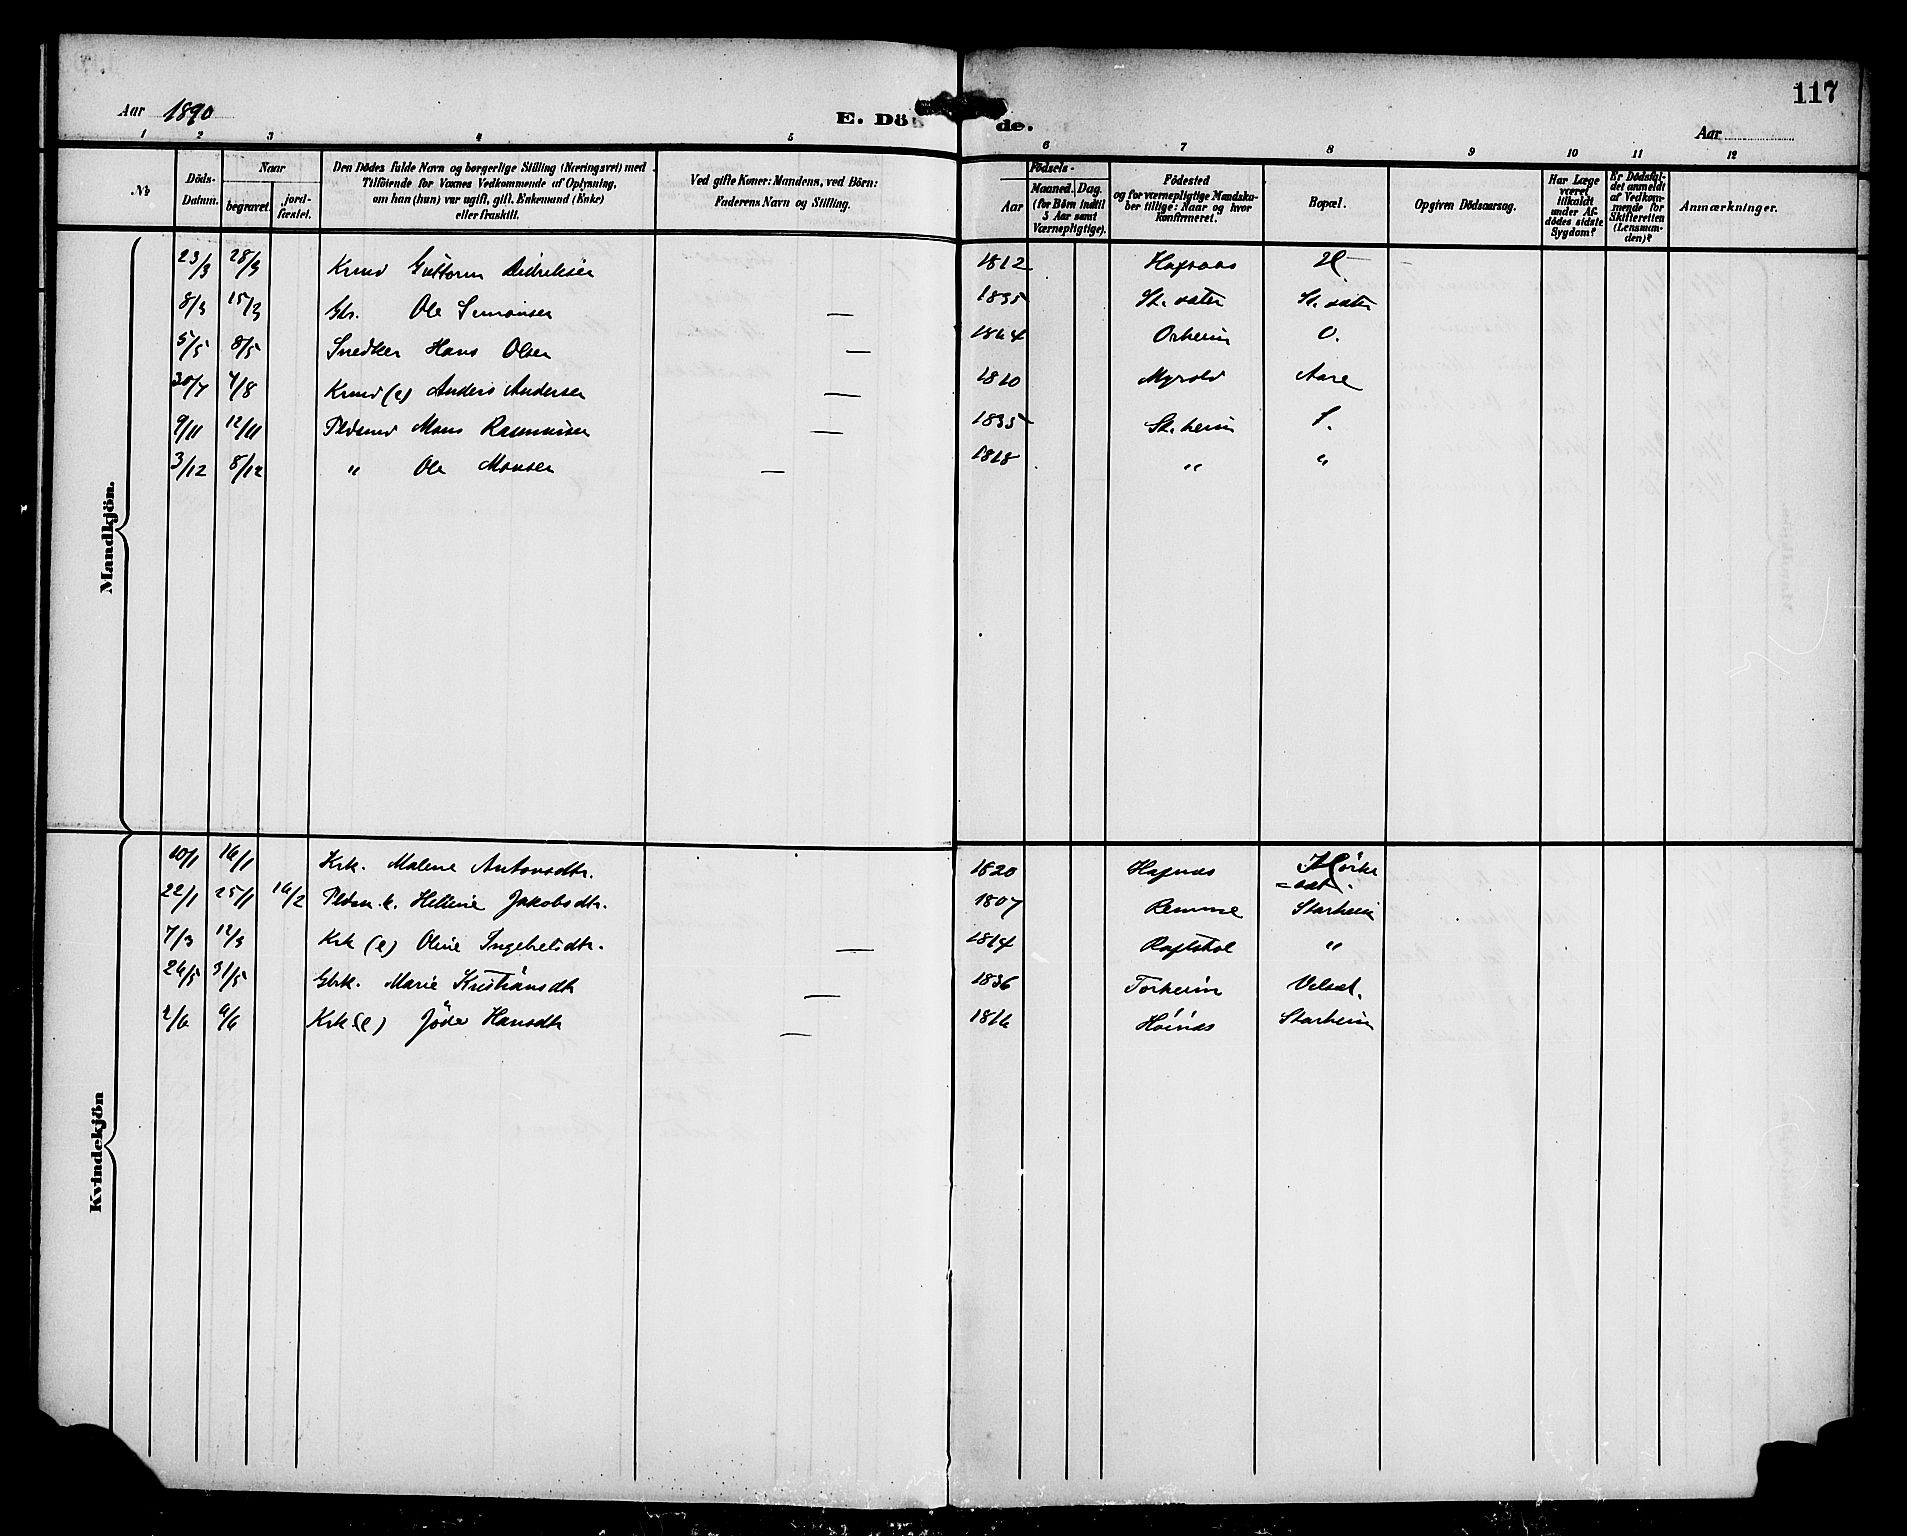 117
Aar 1890
E. Dö de.
Aar
1 2 3 4 5 6 7 8 9 10 11 12
No
Döds-Datum.
Naar
begravet.
jordfæstet.
Den Dödes fulde Navn og borgerlige Stilling (Næringsvei) med
Tilföiende for Voxnes Vedkommende af Oplysning,
om han (hun) var ugift, gift, Enkemand (Enke)
eller fraskilt.
Ved gifte Koner: Mandens, ved Börn:
Faderens Navn og Stilling.
Födsels-
Aar
Maaned. Dag.
(for Börn indtil
5 Aar samt
Værnepligtige).
Födested
og for værnepligtige Mandska-
ber tillige: Naar og hvor
konfirmeret.
Bopæl.
Opgiven Dödsaarsag.
Har Læge
været
tilkaldt
under Af-
dödes sidste
Sygdom?
Er Dödsfal-
det anmeldt
af Vedkom-
mende for
Skifteretten
(Lensman-
den)?
Anmærkninger.
Mandkjön.
23/3 28/3 Kmd Guttorm Didriksen 1812 Hafsaas H
8/3 15/3 Gbr. Ole Simonsen — 1835 St. sater St. sater
5/5 8/5 Snedker Hans Olsen — 1864 Orheim O.
30/7 4/8 Kmd (e) Anders Andersen — 1810 Myrold Aare
9/11 12/11 Pldsmd Mons Rasmussen — 1835 St. heim S.
3/12 8/12 " Ole Monsen — 1818 " "
Kvindekjön
10/1 16/1 Krk. Malene Antonsdtr. 1820 Hafnaas Hjörke
=sat.
22/1 25/1 16/2 Pldsm. k. Helline Jakobsdtr. 1807 Remme Starheim
7/3 12/3 Krk (e) Oline Ingebrtsdtr. — 1814 Raftstol "
26/5 31/5 Gbrk. Marie Kristiansdtr — 1836 Torheim Velsat.
2/6 6/6 Krk (e) Jöde Hansdtr — 1816 Höinas Starheim